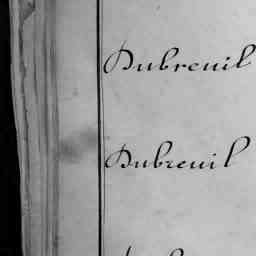 Dubreuil
Dubreuil